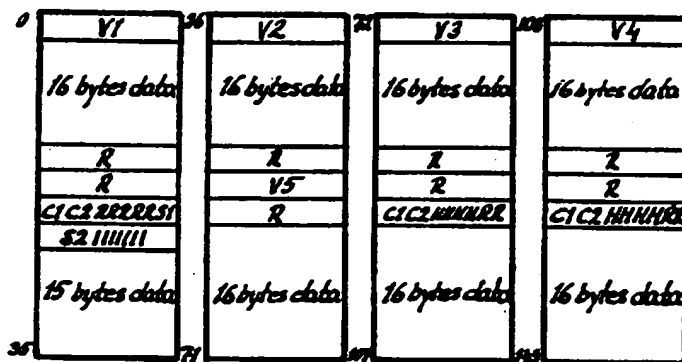 0
V1
16 bytes data
R
R
C1C2RRRRRS1
S2IIIIIII
15 bytes data
35
36
V2
16 bytes data
R
V5
R
16 bytes data
71
72
V3
16 bytes data
R
R
C1C2HHHHRR
16 bytes data
107
108
V4
16 bytes data
R
R
C1C2HHHHRR
16 bytes data
143